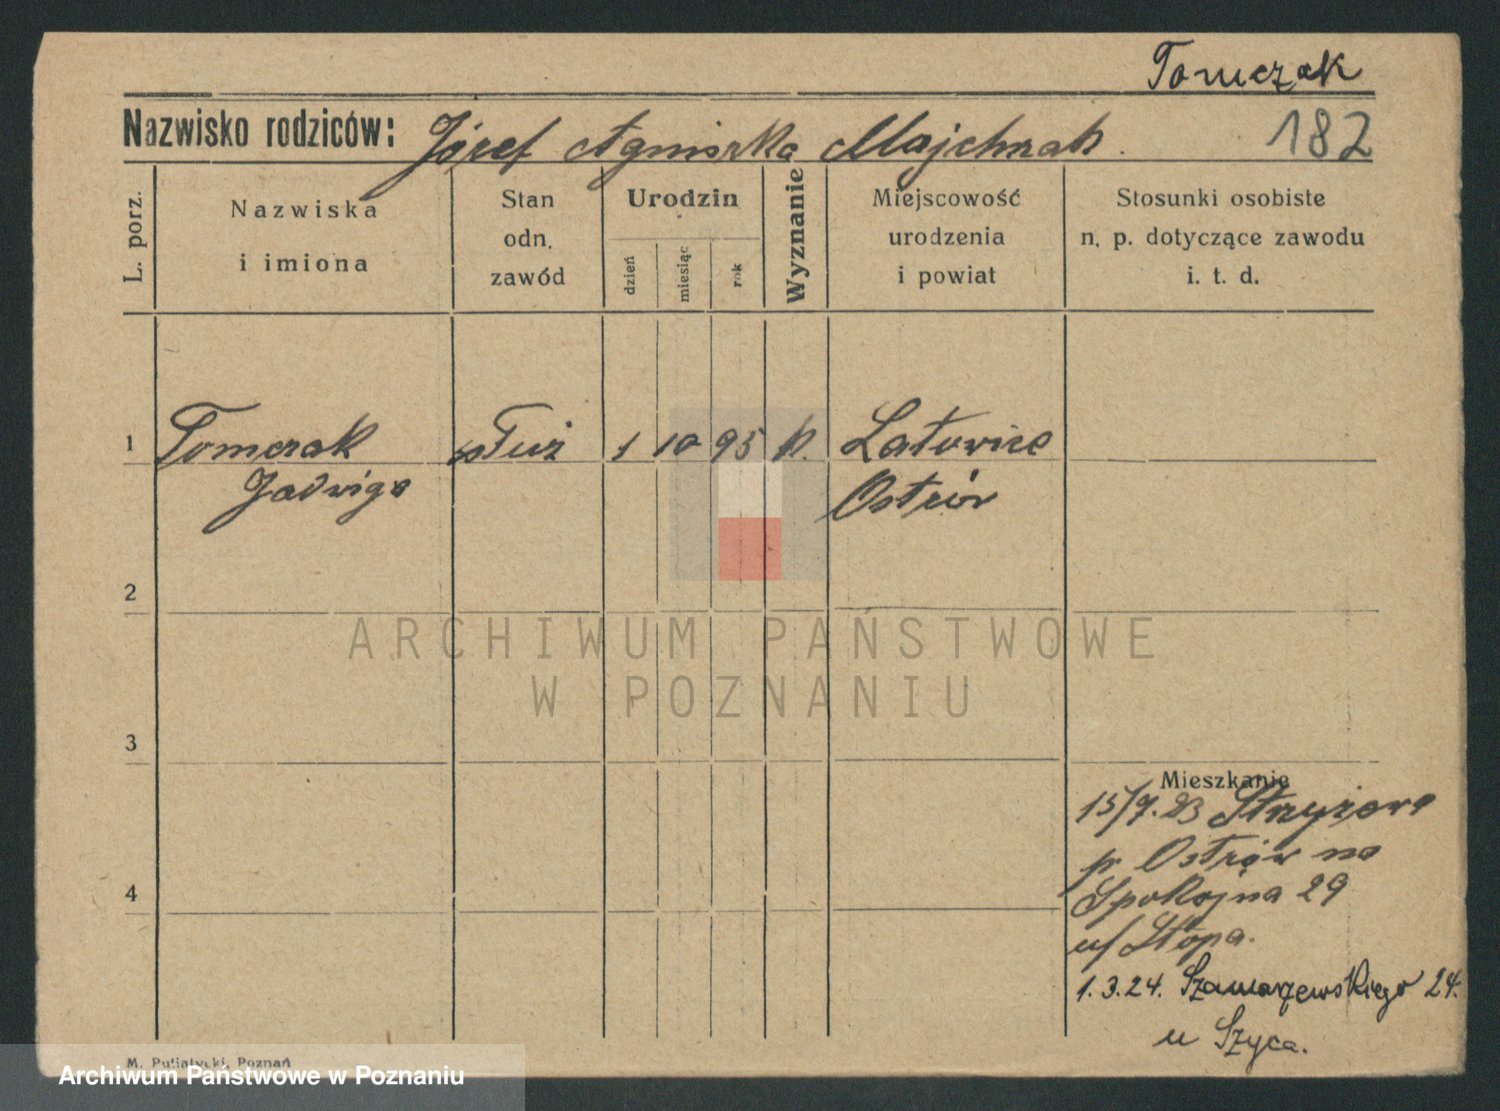 Tomczak
Nazwisko rodziców: Józef Agniszka Majchrzak.
182
L. porz.
Nazwiska
i imiona
Stan
odn.
zawód
Urodzin
dzień
miesiąc
rok
Wyznanie
Miejscowość
urodzenia
i powiat
Stosunki osobiste
n. p. dotyczące zawodu
i. t. d.
1 Tomczak 1 10 95 k. Latowice
Jadwiga Ostrów
2
ARCHIWUM PAŃSTWOWE
W POZNANIU
3
Mieszkanie
15/9.23 Strzyżewo
p Ostrów na
4
Spokojna 29
u/ Stopa.
1.3.24. Szamarzewskiego 24.
u Szyca.
M. Putiatycki, Poznań
Archiwum Państwowe w Poznaniu